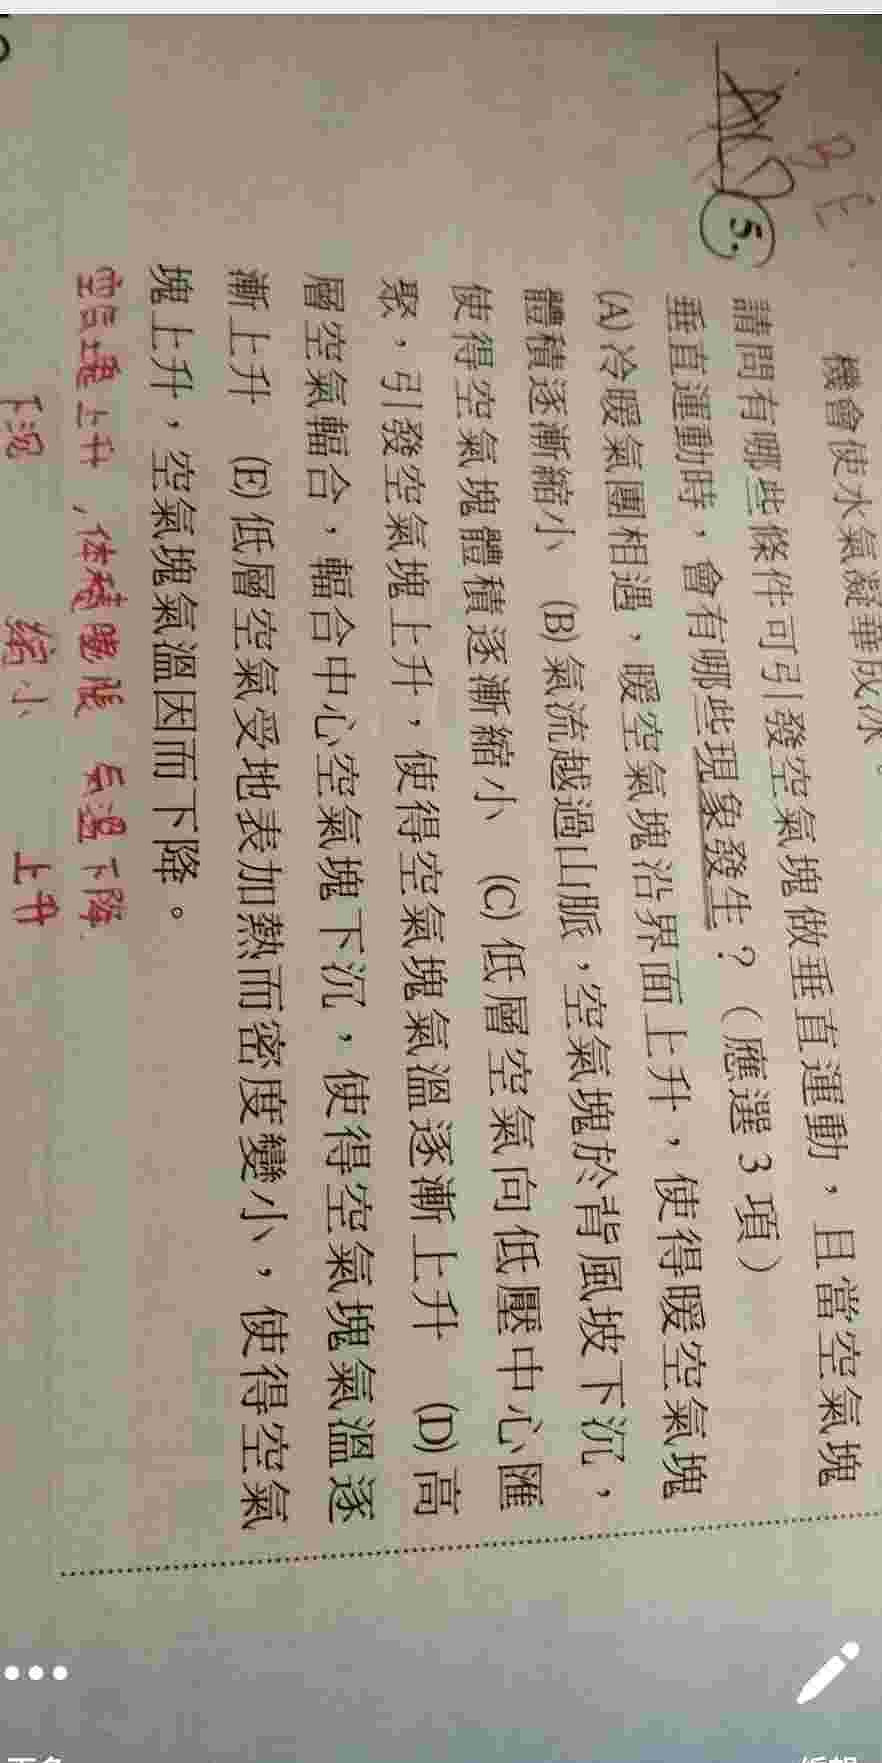 機會使水氣凝華成冰。
5. 請問有哪些條件可引發空氣塊做垂直運動，且當空氣塊
垂直運動時，會有哪些現象發生？（應選3項）
(A)冷暖氣團相遇，暖空氣塊沿界面上升，使得暖空氣塊
體積逐漸縮小 (B)氣流越過山脈，空氣塊於背風坡下沉，
使得空氣塊體積逐漸縮小 (C)低層空氣向低壓中心匯
聚，引發空氣塊上升，使得空氣塊氣溫逐漸上升 (D)高
層空氣輻合，輻合中心空氣塊下沉，使得空氣塊氣溫逐
漸上升 (E)低層空氣受地表加熱而密度變小，使得空氣
塊上升，空氣塊氣溫因而下降。
上升，体積膨脹 氣溫下降
下沉 縮小 上升